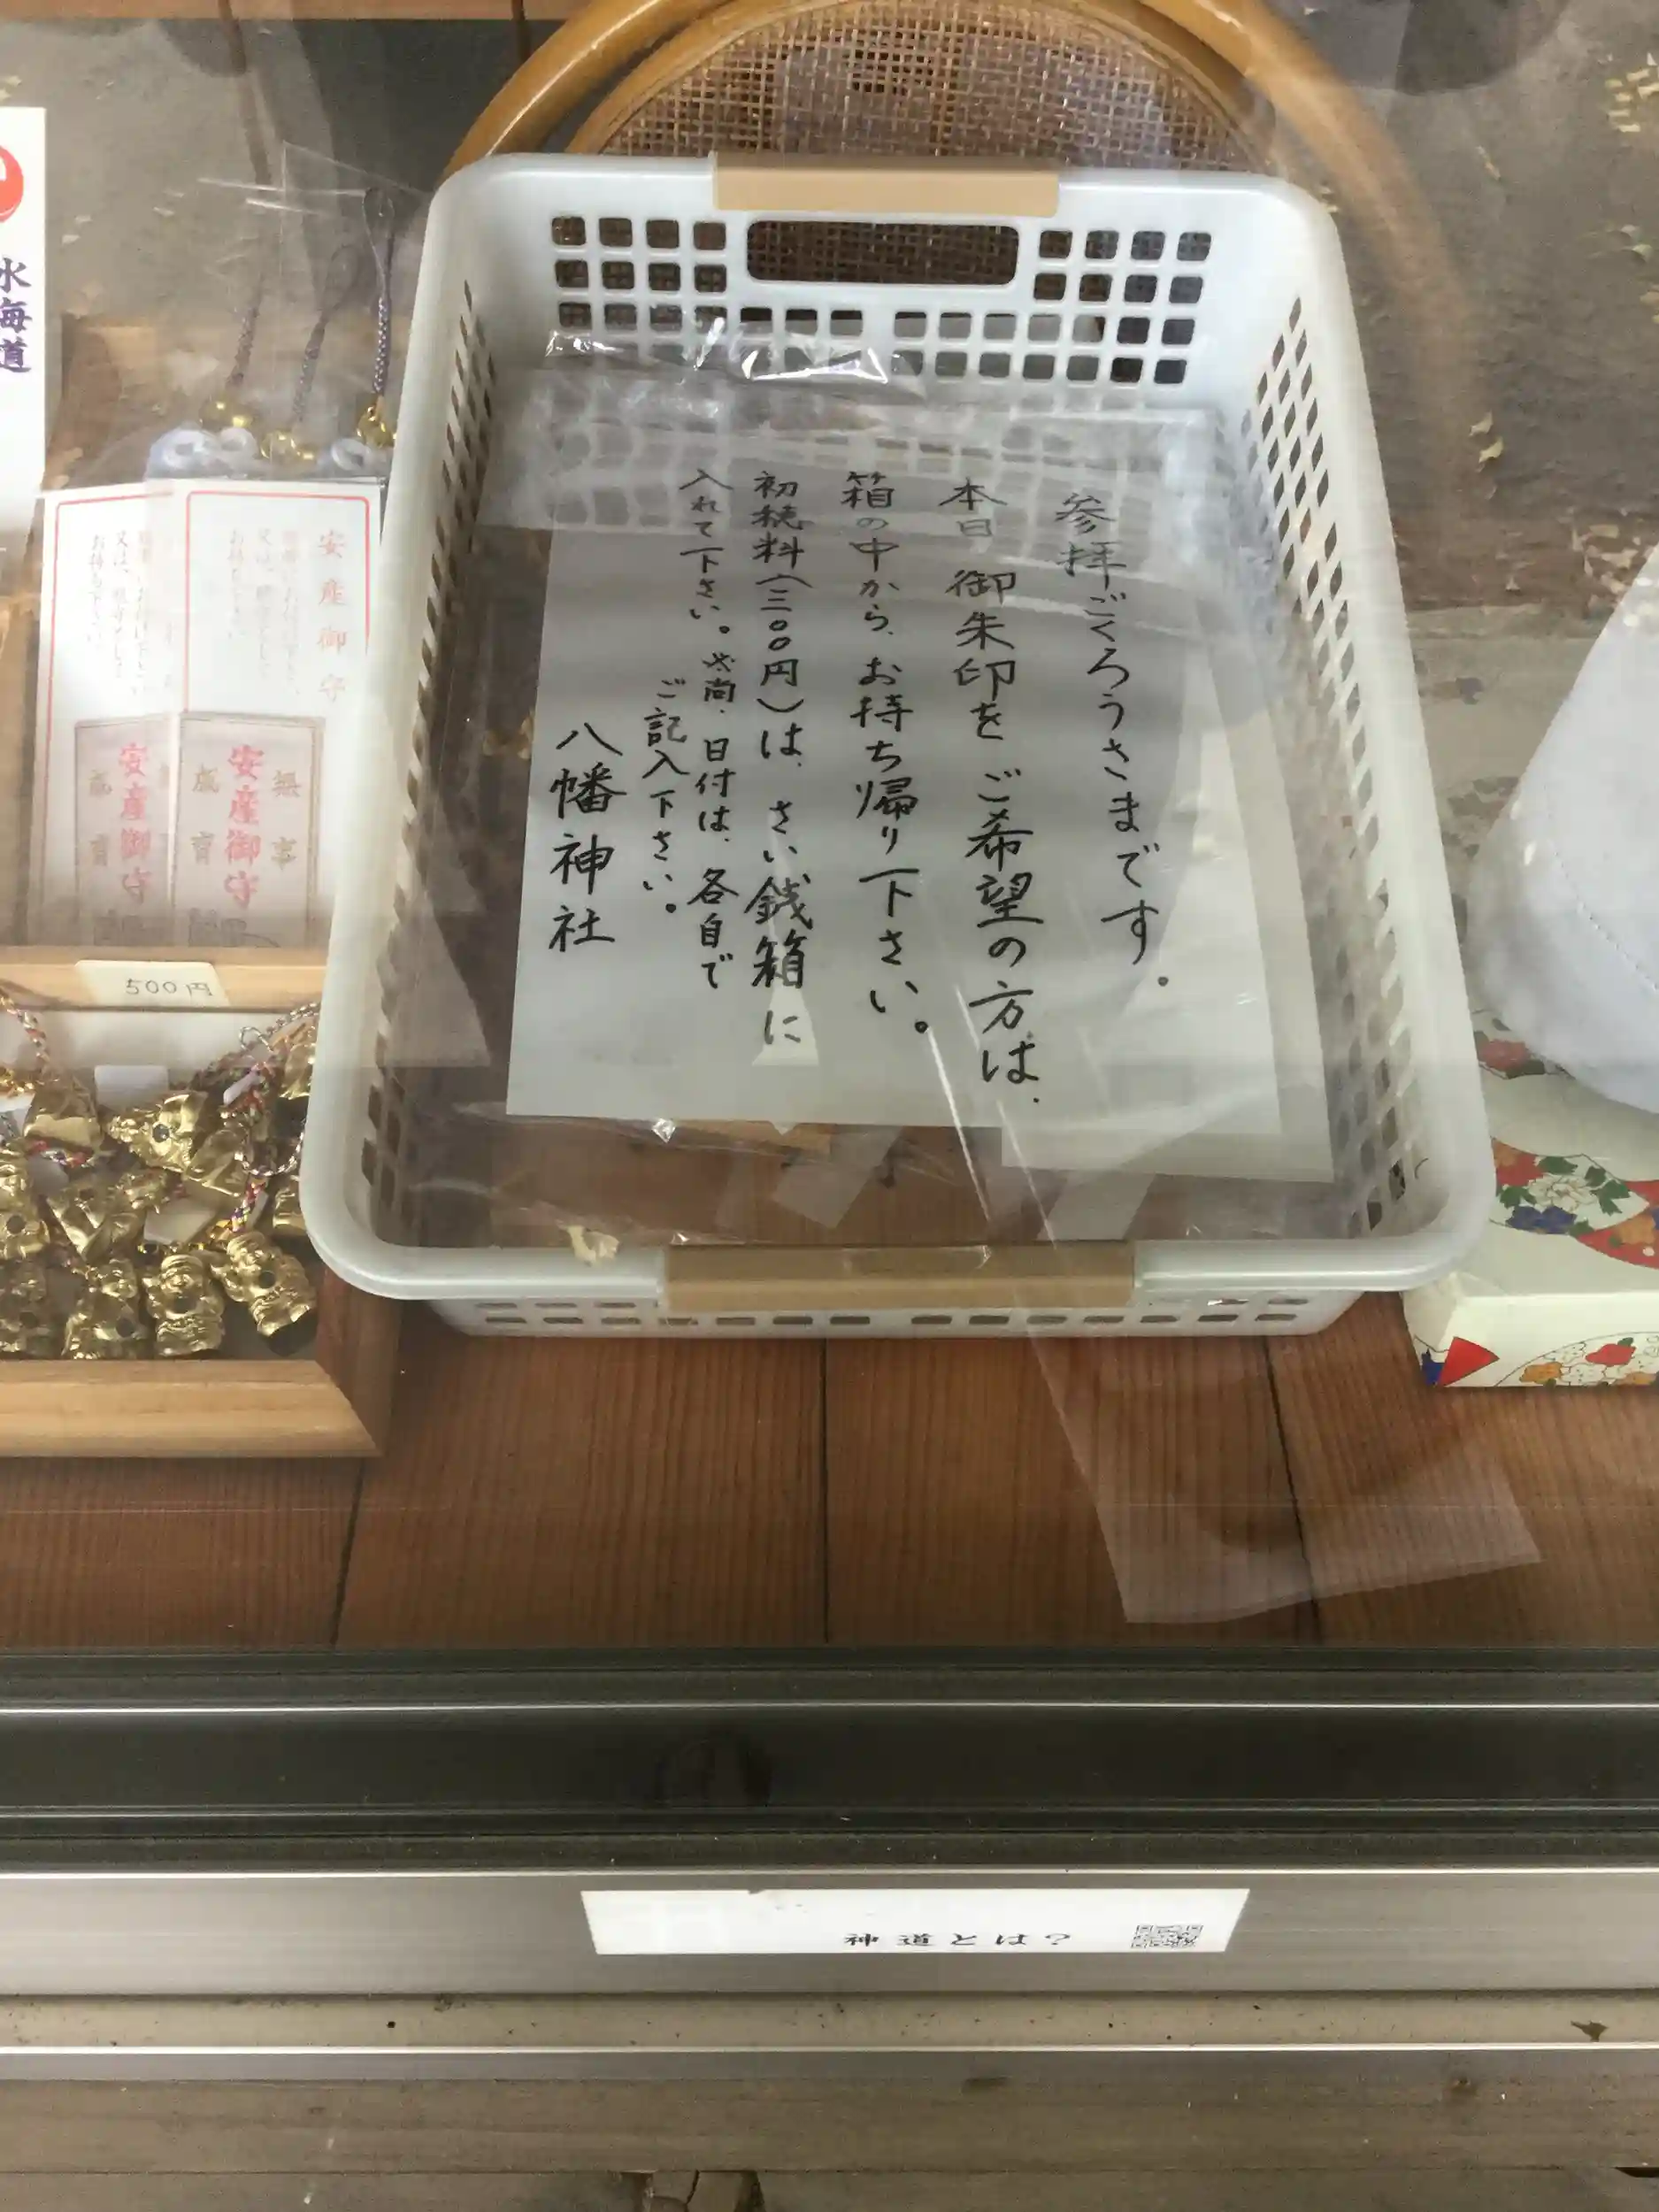 参拝ごくろうさまです。
本日御朱印をご希望の方は、
箱の中から、お持ち帰り下さい。
初穂料(三〇〇円)は、さい銭箱に
入れて下さい。※尚、日付は、各自で
ご記入下さい。
八幡神社
水海道
安産御守
安産御守
無事
成育
安産御守
500円
神道とは?